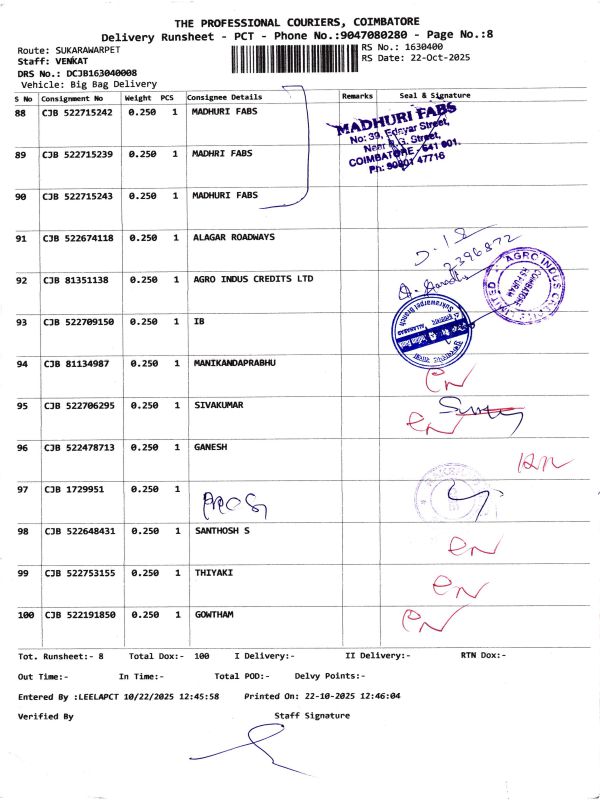 THE PROFESSIONAL COURIERS, COIMBATORE
Delivery Runsheet - PCT - Phone No.:9047080280 - Page No.:8
Route: SUKARAWARPET RS No.: 1630400
Staff: VENKAT RS Date: 22-Oct-2025
DRS No.: DCJB163040008
Vehicle: Big Bag Delivery
S No Consignment No Weight PCS Consignee Details Remarks Seal & Signature
88 CJB 522715242 0.250 1 MADHURI FABS
MADHURI FABS
No: 39, Edayar Street,
Near R.G. Street,
COIMBATORE - 641 001.
Ph: 90801 47716
89 CJB 522715239 0.250 1 MADHRI FABS
90 CJB 522715243 0.250 1 MADHURI FABS
91 CJB 522674118 0.250 1 ALAGAR ROADWAYS
92 CJB 81351138 0.250 1 AGRO INDUS CREDITS LTD
AGRO INDUS CREDITS LIMITED
COIMBATORE
RS PURAM
93 CJB 522709150 0.250 1 IB
Indian Bank
ALLAHABAD
Sukrawarpet Branch
94 CJB 81134987 0.250 1 MANIKANDAPRABHU
95 CJB 522706295 0.250 1 SIVAKUMAR
96 CJB 522478713 0.250 1 GANESH
97 CJB 1729951 0.250 1
98 CJB 522648431 0.250 1 SANTHOSH S
99 CJB 522753155 0.250 1 THIYAKI
100 CJB 522191850 0.250 1 GOWTHAM
Tot. Runsheet:- 8 Total Dox:- 100 I Delivery:- II Delivery:- RTN Dox:-
Out Time:- In Time:- Total POD:- Delvy Points:-
Entered By :LEELAPCT 10/22/2025 12:45:58 Printed On: 22-10-2025 12:46:04
Verified By Staff Signature